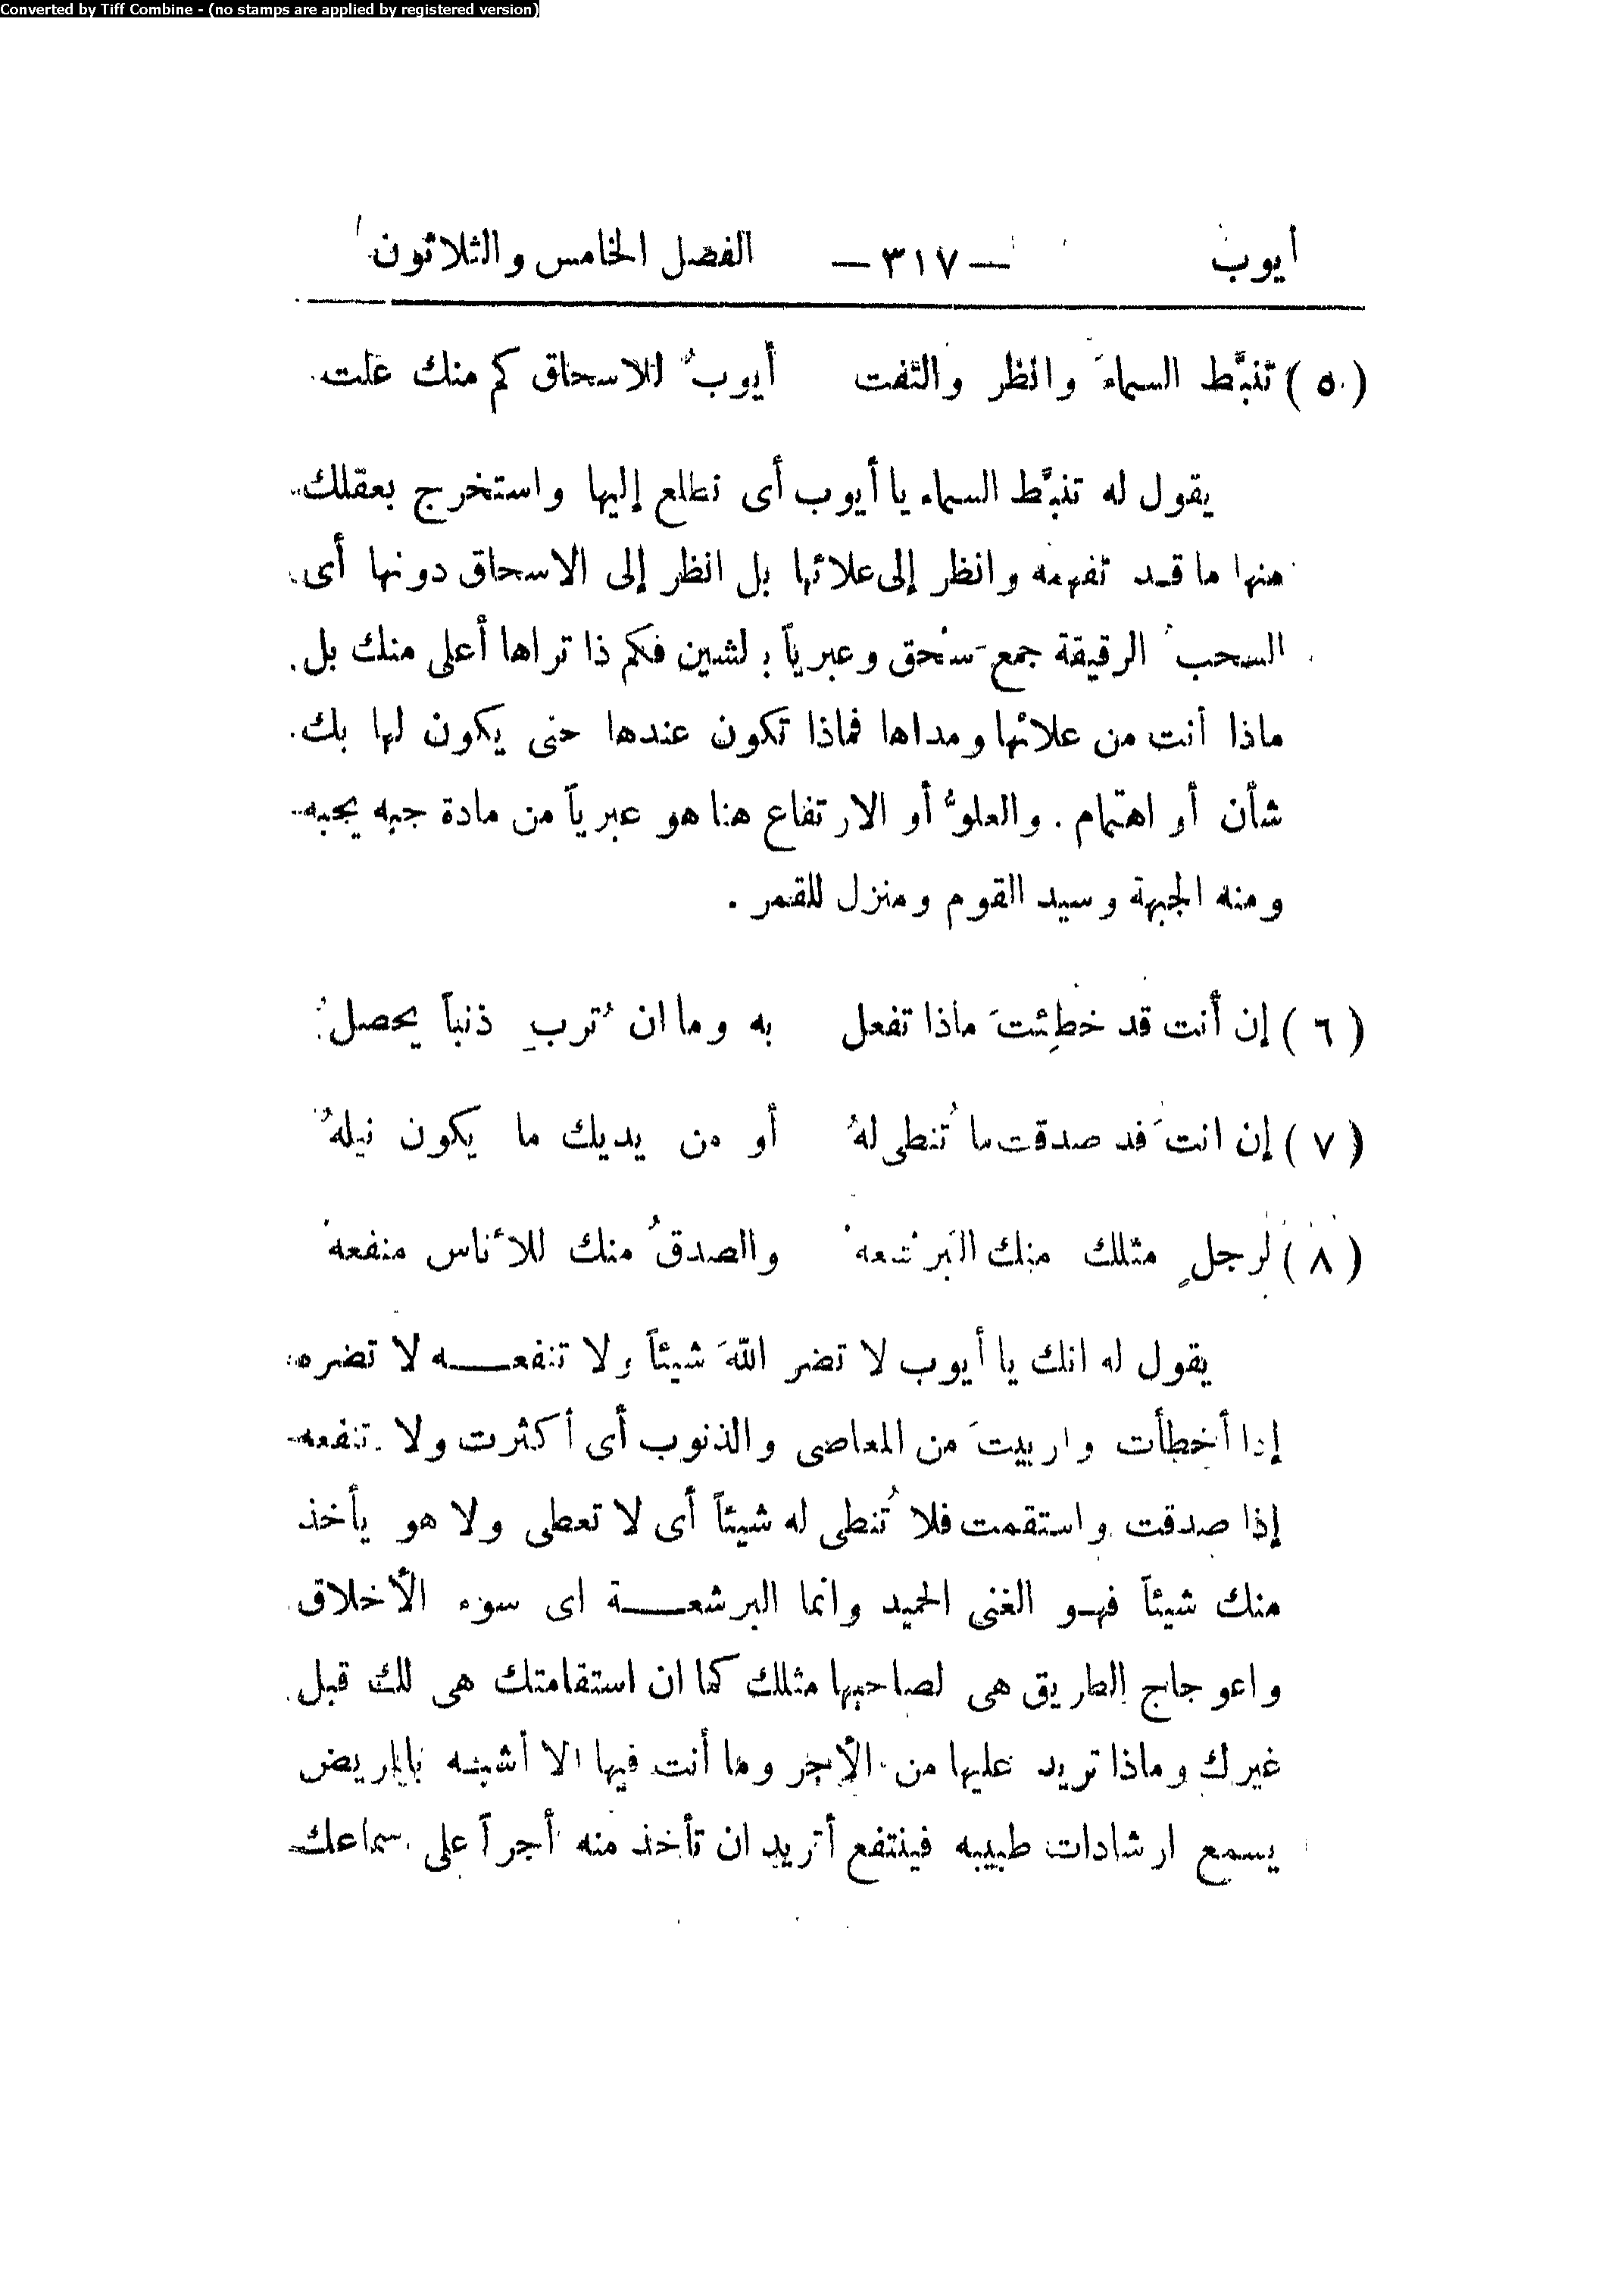 Converted by Tiff Combine - (no stamps are applied by registered version)
أيوب — ٣١٧ — الفصل الخامس والثلاثون
(٥) تنبَّط السماءَ وانظر والتفت أيوبُ للاسحاق كم منك علت
يقول له تنبَّط السماء يا أيوب أى تطلع إليها واستخرج بعقلك
منها ما قد تفهمه وانظر إلى علائها بل انظر إلى الاسحاق دونها أى
السحب الرقيقة جمع سَحق وعبرياً بالشين فكم ذا تراها أعلى منك بل
ماذا أنت من علائها ومداها فماذا تكون عندها حتى يكون لها بك
شأن أو اهتمام . والعلوُّ أو الارتفاع هنا هو عبرياً من مادة جبه يجبه
ومنه الجبهة وسيد القوم ومنزل للقمر .
(٦) إن أنت قد خطِئتَ ماذا تفعل به وما ان تُربِ ذنباً يحصل
(٧) إن انتَ قد صدقت ما تُنطى لهُ أو من يديك ما يكون نيلهُ
(٨) لرجلٍ مثلك منك البَرشعه والصدقُ منك للأناس منفعه
يقول له انك يا أيوب لا تضر اللهَ شيئاً ولا تنفعه لا تضره
إذا أخطأت واربيتَ من المعاصى والذنوب أى أكثرت ولا تنفعه
إذا صدقت واستقمت فلا تُنطى له شيئاً أى لا تعطى ولا هو يأخذ
منك شيئاً فهو الغنى الحميد وانما البرشعة اى سوء الأخلاق
واعوجاج الطريق هى لصاحبها مثلك كما ان استقامتك هى لك قبل
غيرك وماذا تريد عليها من الأجر وما أنت فيها الا أشبه بالمريض
يسمع ارشادات طبيبه فينتفع أتريد ان تأخذ منه أجراً على سماعك